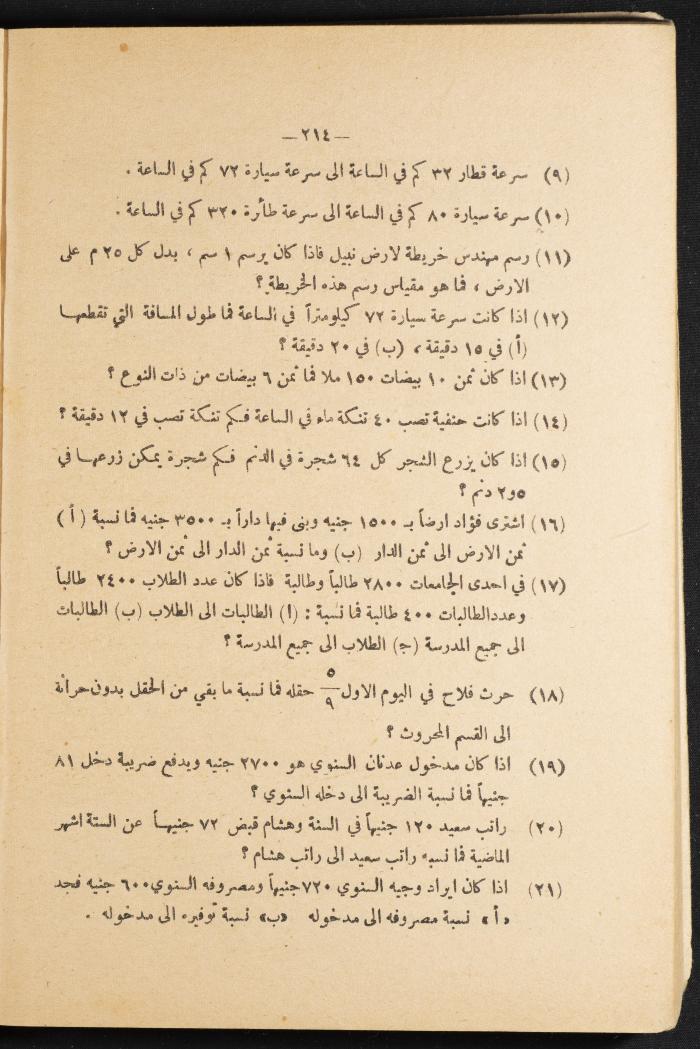 —٢١٤—
(٩) سرعة قطار ٣٢ كم في الساعة الى سرعة سيارة ٧٢ كم في الساعة .
(١٠) سرعة سيارة ٨٠ كم في الساعة الى سرعة طأرة ٣٢٠ كم في الساعة .
(١١) رسم مهندس خريطة لارض نبيل فاذا كان يرسم ١ سم ، بدل كل ٢٥ م على
الارض ، فما هو مقياس رسم هذه الخريطة ؟
(١٢) اذا كانت سرعة سيارة ٧٢ كيلومتراً في الساعة فما طول المسافة التي تقطعهـا
(أ) في ١٥ دقيقة ، (ب) في ٢٠ دقيقة ؟
(١٣) اذا كان ثمن ١٠ بيضات ١٥٠ ملا فما ثمن ٦ بيضات من ذات النوع ؟
(١٤) اذا كانت حنفية تصب ٤٠ تنكة ماء في الساعة فـكم تنكة تصب في ١٢ دقيقة ؟
(١٥) اذا كان يزرع الشجر كل ٦٤ شجرة في الدنم فـكم شجرة يمكن زرعهـا في
٢٫٥ دنم ؟
(١٦) اشترى فؤاد ارضاً بـ ١٥٠٠ جنيه وبنى فيها داراً بـ ٣٥٠٠ جنيه فما نسبة (أ)
ثمن الارض الى ثمن الدار (ب) وما نسبة ثمن الدار الى ثمن الارض ؟
(١٧) في احدى الجامعات ٢٨٠٠ طالباً وطالبة فاذا كان عدد الطلاب ٢٤٠٠ طالباً
وعددالطالبات ٤٠٠ طالبة فما نسبة : (ا) الطالبات الى الطلاب (ب) الطالبات
الى جميع المدرسة (ج) الطلاب الى جميع المدرسة ؟
(١٨) حرث فلاح في اليوم الاول ٥/٩ حقله فما نسبة ما بقي من الحقل بدون حراثة
الى القسم المحروث ؟
(١٩) اذا كان مدخول عدنان السنوي هو ٢٧٠٠ جنيه ويدفع ضريبة دخل ٨١
جنيهاً فما نسبة الضريبة الى دخله السنوي ؟
(٢٠) راتب سعيد ١٢٠ جنيهاً في السنة وهشام قبض ٧٢ جنيهـاً عن الستة اشهر
الماضية فما نسبه راتب سعيد الى راتب هشام ؟
(٢١) اذا كان ايراد وجيه السنوي ٧٢٠جنيهاً ومصروفه السنوي٦٠٠ جنيه فجد
«أ» نسبة مصروفه الى مدخوله «ب» نسبة توفيره الى مدخوله .